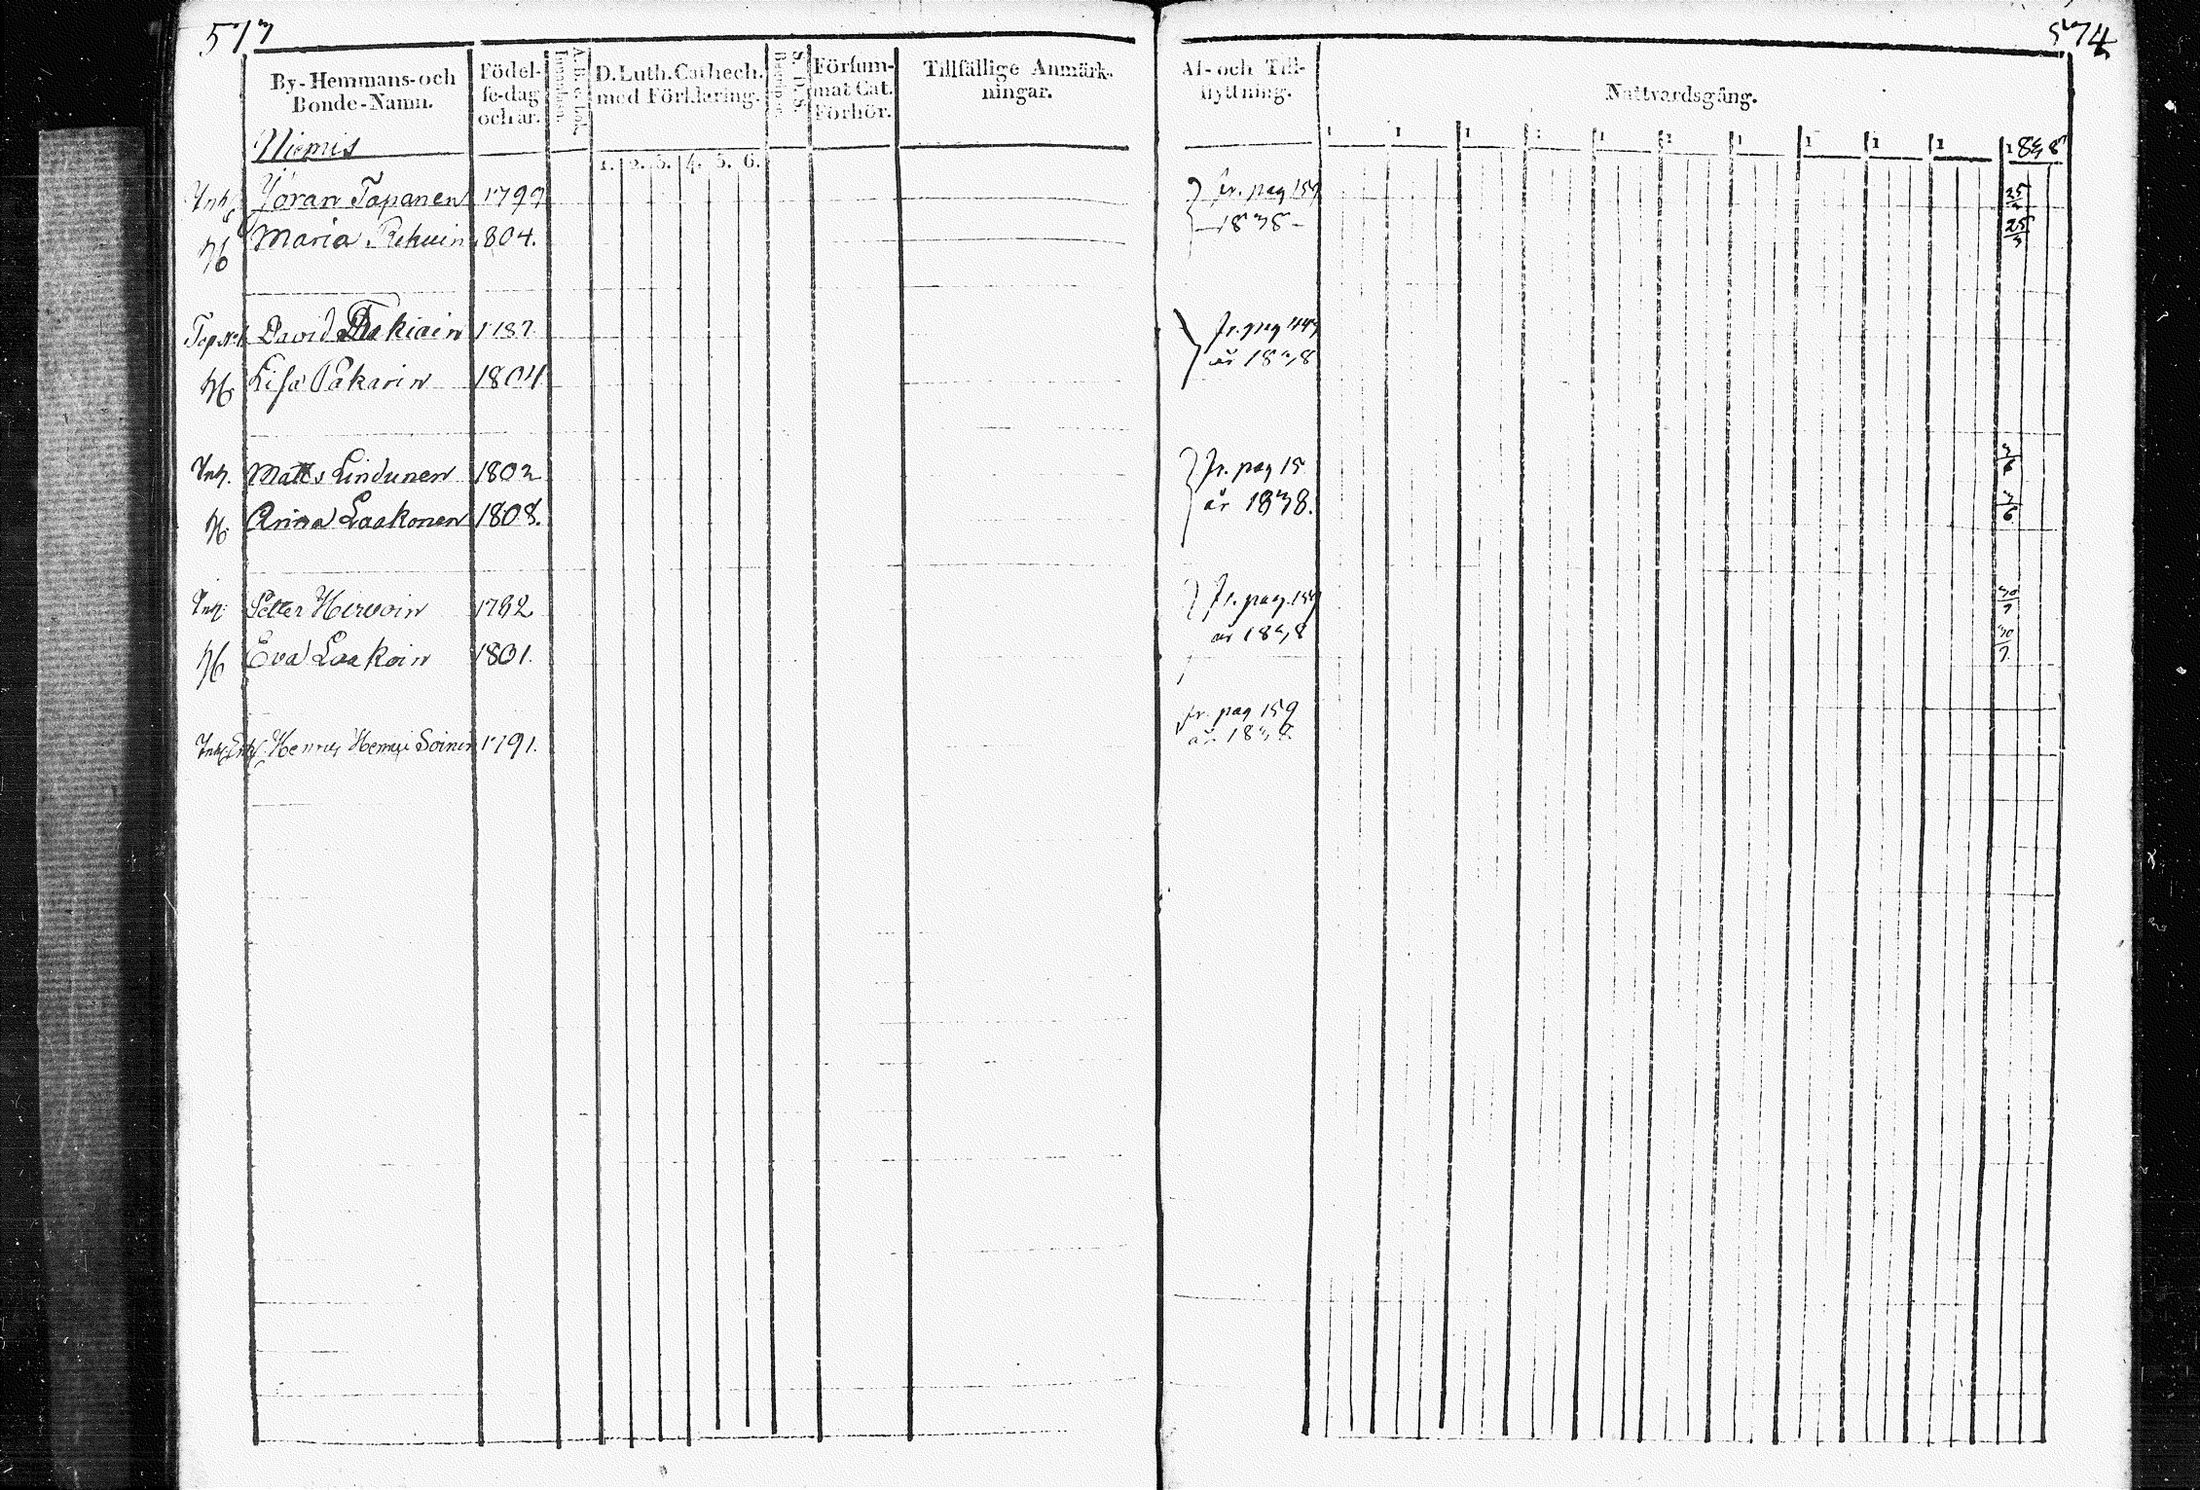 573
By-Hemmans-och Bonde-Namn.
Födel-se-dag och år.
D. Luth. Cathech. med Förklaring.
1. 2. 3. 4. 5. 6.
Försum-mat Cat. Förhör.
Tillfällige Anmärk-ningar.
Niemis
Inh. Jöran Tapanen 1799
H Maria 1804.
David 1787
H Lisa Pakarin 1804
Inh. Matts Lindunen 1802
H Anna Laakonen 1808.
Inh. Petter Hirvoin 1782
H Eva Laakoin 1801.
Inh. Enkl. Henry Soinin 1791.
574
Af- och Till-flyttning.
Nattvardsgång.
1 1 1 1 1 1 1 1 1 1 1838
fr. pag 159
1838
25/3
25/3
fr. pag 443
år 1838
fr. pag 15
år 1838.
3/6
3/6
fr. pag. 159
år 1838
30/7
30/7
fr. pag 159
år 1838